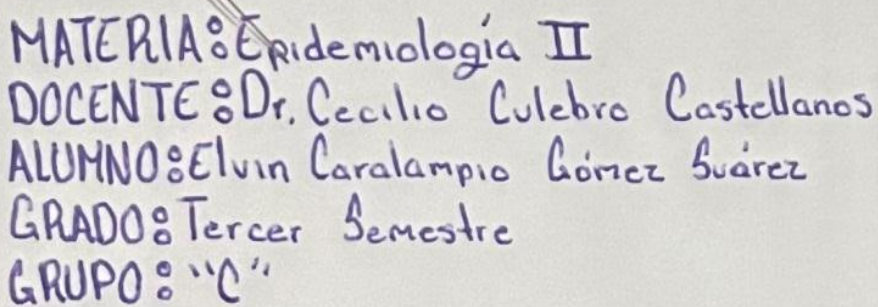 MATERIA: Epidemiología II
DOCENTE: Dr. Cecilio Culebro Castellanos
ALUMNO: Elvin Caralampio Gómez Suárez
GRADO: Tercer Semestre
GRUPO: "C"